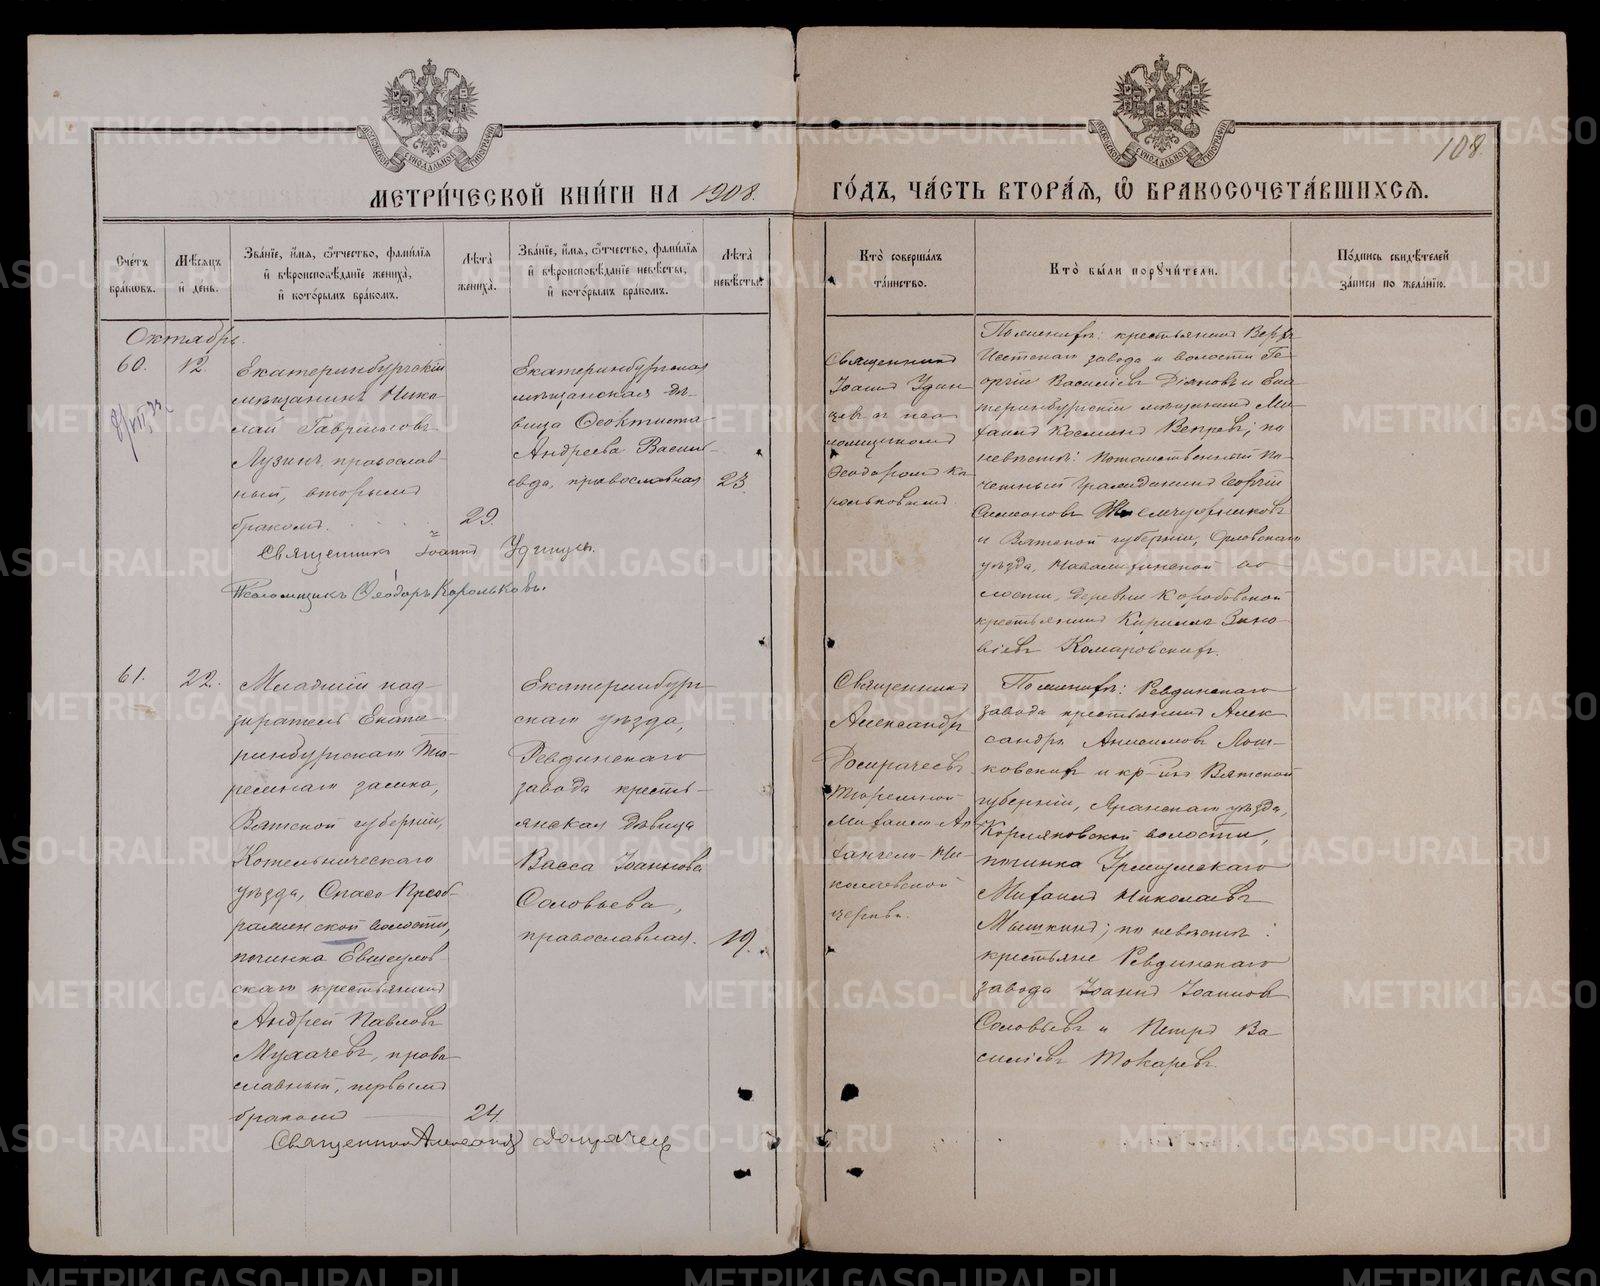 МЕТРИ́ЧЕСКОЙ КНИ́ГИ НА 1908.
ГО́ДЪ, ЧА́СТЬ ВТОРА́Я, Ѽ БРАКОСОЧЕТА́ВШИХСЯ.
108.
Сче́тъ бра́ковъ.
Мѣ́сяцъ и҆ де́нь.
Зва́нїе, и҆́мя, ѻ҆́тчество, фами́лїя и҆ вѣроисповѣ́данїе жениха̀, и҆ кото́рымъ бра́комъ.
Лѣ́та жениха̀.
Зва́нїе, и҆́мя, ѻ҆́тчество, фами́лїя и҆ вѣроисповѣ́данїе невѣ́сты, и҆ кото́рымъ бра́комъ.
Лѣ́та невѣ́сты.
Кто̀ соверша́лъ та́инство.
Кто̀ бы́ли порꙋчи́тели.
По́дпись свидѣ́телей за́писи по жела́нїю.
Октябрь.
60.
12.
Екатеринбургскій
мѣщанинъ Нико-
лай Гавриловъ
Лузинъ, православ-
ный, вторымъ
бракомъ.
29.
Екатеринбургская
мѣщанская дѣ-
вица Ѳеоктиста
Андреева Василь-
ева, православная
23.
Священникъ
Іоаннъ Удин
цевъ и пса
ломщикомъ
Ѳеодоромъ Ко
рольковымъ
По женихѣ: крестьянинъ Верхъ
Исетскаго завода и волости Ге
оргій Василіевъ Діяновъ и Ека
теринбургскій мѣщанинъ Ми
хаилъ Косминъ Вепревъ; по
невѣстѣ: потомственный по
четный гражданинъ Георгій
Симеоновъ Жемчужниковъ
и Вятской губерніи, Орловскаго
уѣзда,
лости, деревни Коробовской
крестьянинъ Кириллъ Зино
віевъ Комаровскихъ.
Священникъ Іоаннъ Удинцевъ.
Псаломщикъ Ѳеодоръ Корольковъ.
61.
22.
Младшій над
зиратель Екате
ринбургскаго Тю-
ремнаго замка,
Вятской губерніи,
Котельническаго
уѣзда, Спасо Преоб-
раженской волости,
починка
скаго крестьянинъ
Андрей Павловъ
Мухачевъ, право
славный, первымъ
бракомъ
24.
Екатеринбург
скаго уѣзда,
Ревдинскаго
завода кресть-
янская дѣвица
Васса Іоаннова
Соловьева,
православная.
19.
Священникъ
Александръ
Домрачевъ
Тюремной
Михаило-Ар
хангело-Ни
колаевской
церкви.
По женихѣ: Ревдинскаго
завода крестьянинъ Алек
сандръ Анисимовъ Лош-
ковскихъ и кр-нъ Вятской
губерніи, Яранскаго уѣзда,
Корляковской волости,
починка
Михаилъ Николаевъ
Мышкинъ; по невѣстѣ:
крестьяне Ревдинскаго
завода Іоаннъ Іоанновъ
Соловьевъ и Петръ Ва
силіевъ Токаревъ.
Священникъ Александръ Домрачевъ